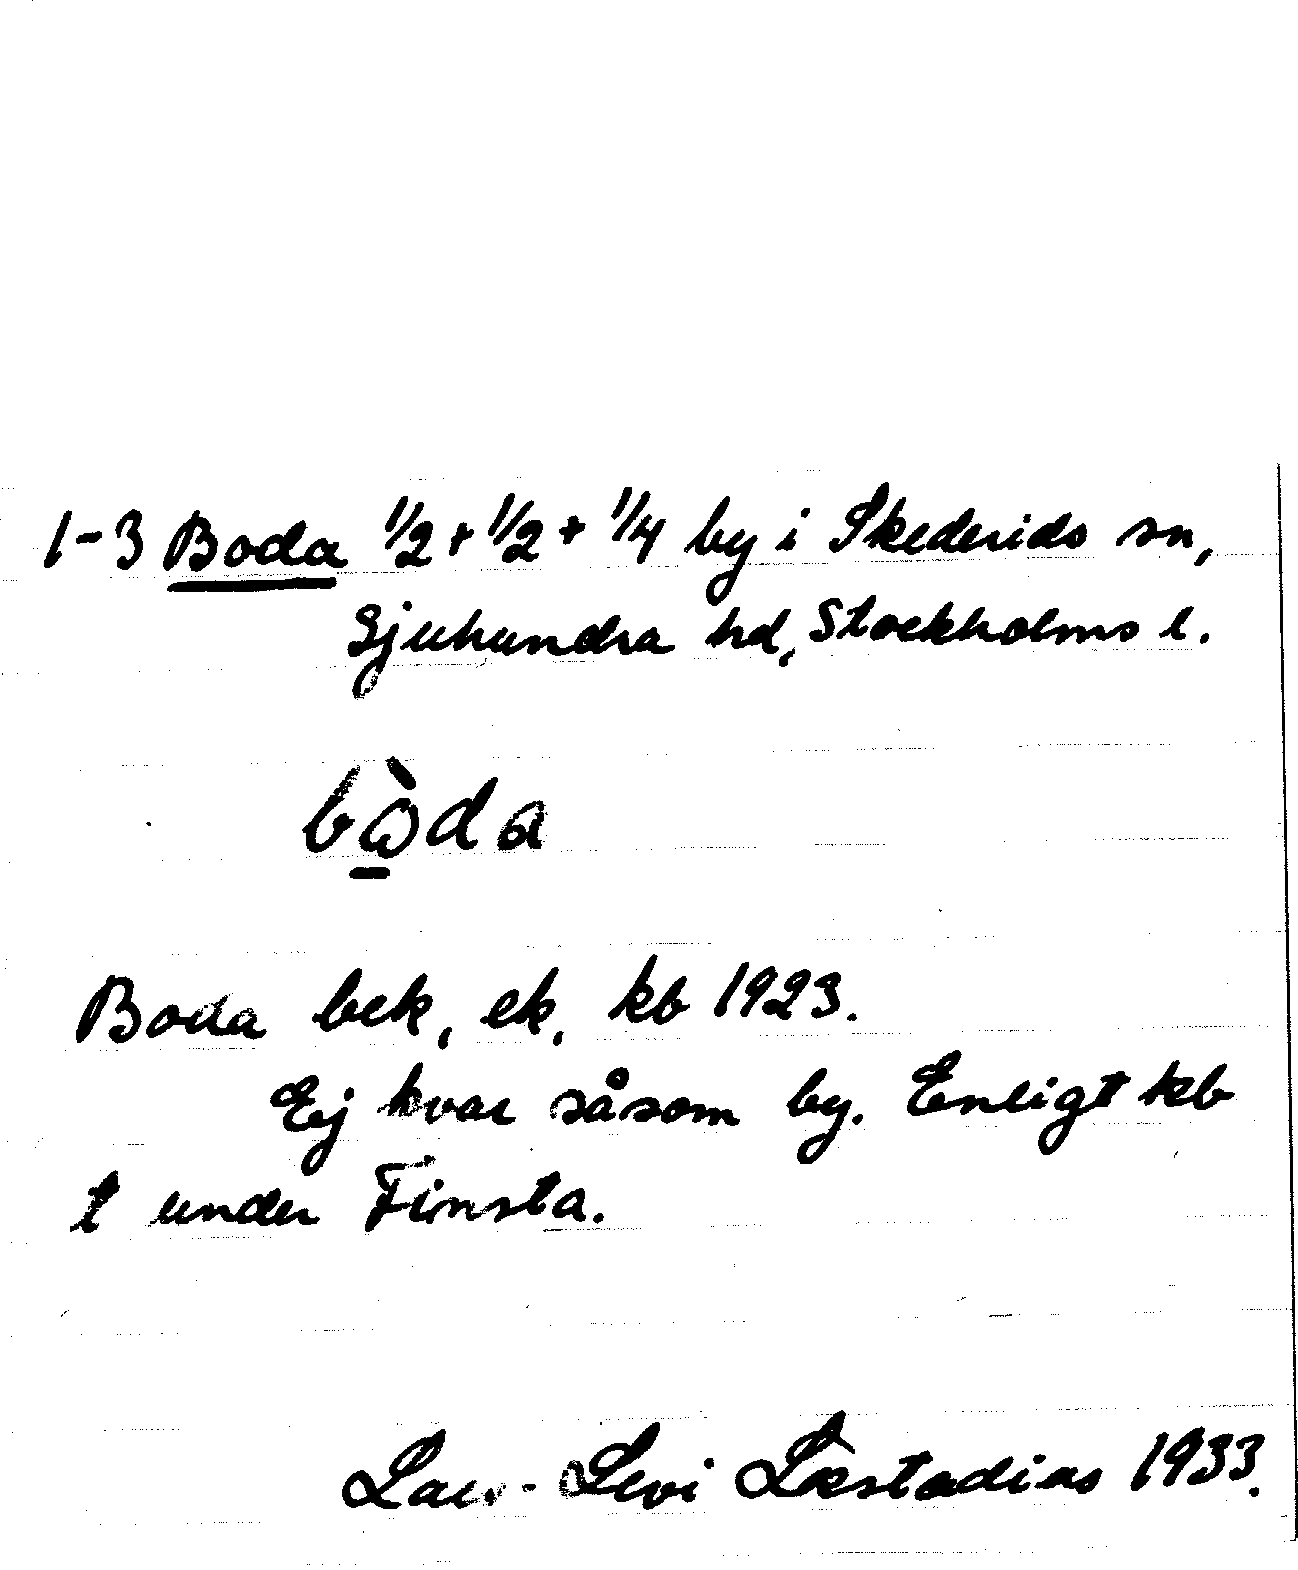 1-3 Boda 1/2 + 1/2 + 1/4 by i Skederids sn,
Sjuhundra hd, Stockholms l.
bò̱da
Boda bek, ek, kb 1923.
Ej kvar såsom by. Enligt kb
t under Finsta.
Lars-Levi Læstadius 1933.